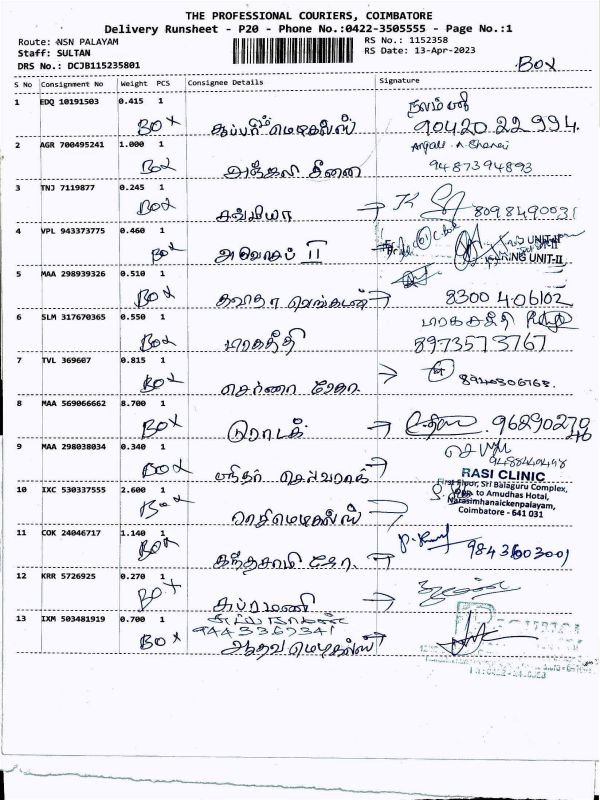 THE PROFESSIONAL COURIERS, COIMBATORE
Delivery Runsheet - P20 - Phone No.:0422-3505555 - Page No.:1
Route: NSN PALAYAM
RS No.: 1152358
Staff: SULTAN
RS Date: 13-Apr-2023
DRS No.: DCJB115235801
BOX
S No Consignment No Weight PCS Consignee Details Signature
1 EDQ 10191503 0.415 1
BOX 90420 22994.
2 AGR 700495241 1.000 1
BOX அஞ்சலி 9487394893
3 TNJ 7119877 0.245 1
BOX சவ்மியா → 8098490031
4 VPL 943373775 0.460 1
BOX II
NG UNIT-II
5 MAA 298939326 0.510 1
BOX கவிதா வெங்கடேஷ் → 8300 406102
6 SLM 317670365 0.550 1
BOX பாரகதி 8973575767
7 TVL 369607 0.815 1
BOX → 8940306768.
8 MAA 569066662 8.700 1
BOX → 96290270
9 MAA 298038034 0.340 1
BOX ஸ்ரீதர் செல்வராஜ் →
RASI CLINIC
First Floor, Sri Balaguru Complex,
to Amudhas Hotal,
Narasimhanaickenpalayam,
Coimbatore - 641 031
10 IXC 530337555 2.600 1
BOX ராசிமெடிகல்ஸ் →
11 COK 24046717 1.140 1
BOX கந்தசாமி → 9843603001
12 KRR 5726925 0.270 1
BOX சுப்ரமணி →
13 IXM 503481919 0.700 1
9443367341
BOX ஆதவ மெடிகல்ஸ் →